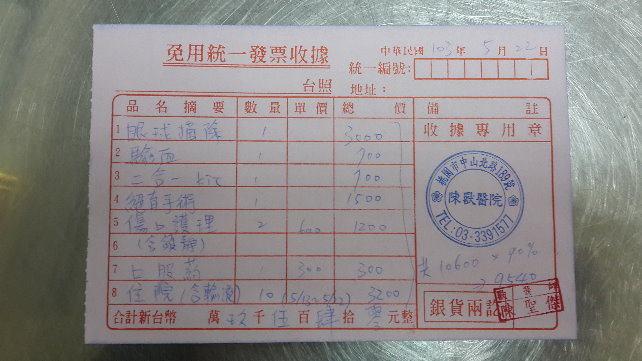 免用統一發票收據
中華民國 103 年 5 月 22 日
統一編號:
台照 地址:
品名摘要 數量 單價 總價 備註
1 眼球摘除 1 3000
收據專用章
2 驗血 1 700
3 二合一 kit 1 700
4 手術 1 1500
5 傷口護理 2 600 1200
6
7 口服藥 1 300 300
8 住院 10 (5/13~5/22) 3200
桃園市中山北路189號
陳獸醫院
TEL:03-3391577
共 10600 × 90%
9540
銀貨兩訖
陳聖傑
合計新台幣 萬 玖 千 伍 百 肆 拾 零 元整